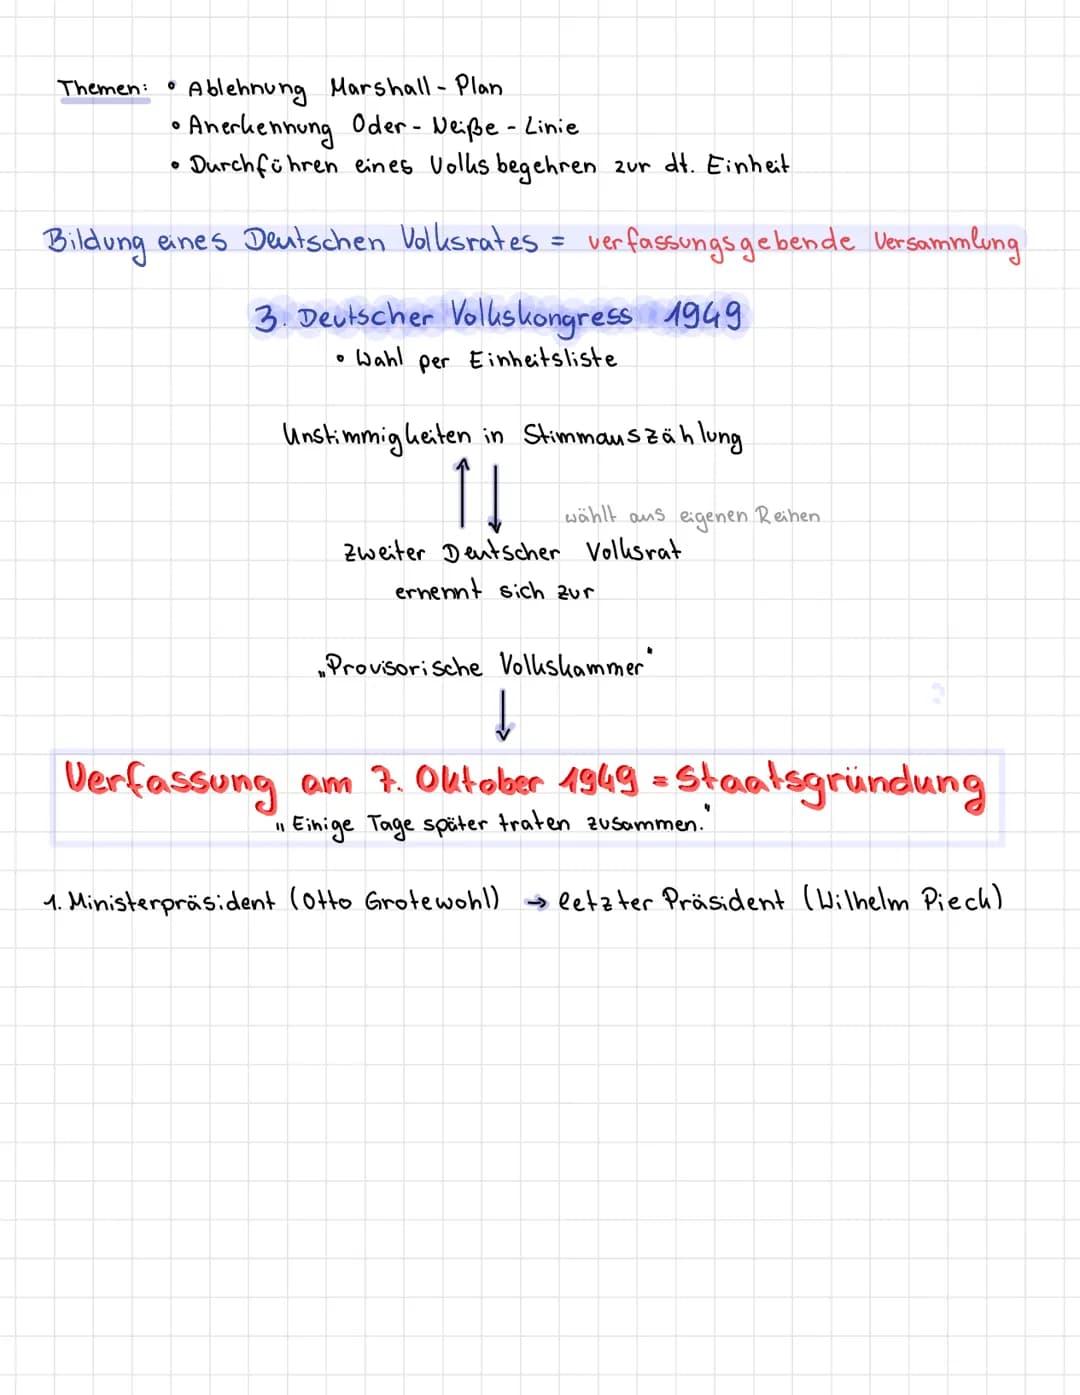 Themen: • Ablehnung Marshall-Plan
• Anerkennung Oder-Neiße-Linie
• Durchführen eines Volksbegehren zur dt. Einheit
Bildung eines Deutschen Volksrates = verfassungsgebende Versammlung
3. Deutscher Volkskongress 1949
• Wahl per Einheitsliste
Unstimmigkeiten in Stimmauszählung
wählt aus eigenen Reihen
Zweiter Deutscher Volksrat
ernennt sich zur
„Provisorische Volkskammer"
Verfassung am 7. Oktober 1949 = Staatsgründung
„Einige Tage später traten zusammen."
1. Ministerpräsident (Otto Grotewohl) → letzter Präsident (Wilhelm Pieck)